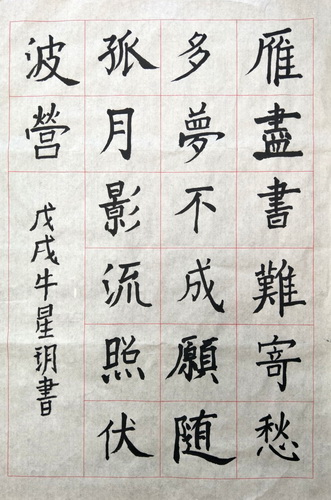 雁盡書難寄愁
多夢不成願隨
孤月影流照伏
波營
戊戌牛星玥書